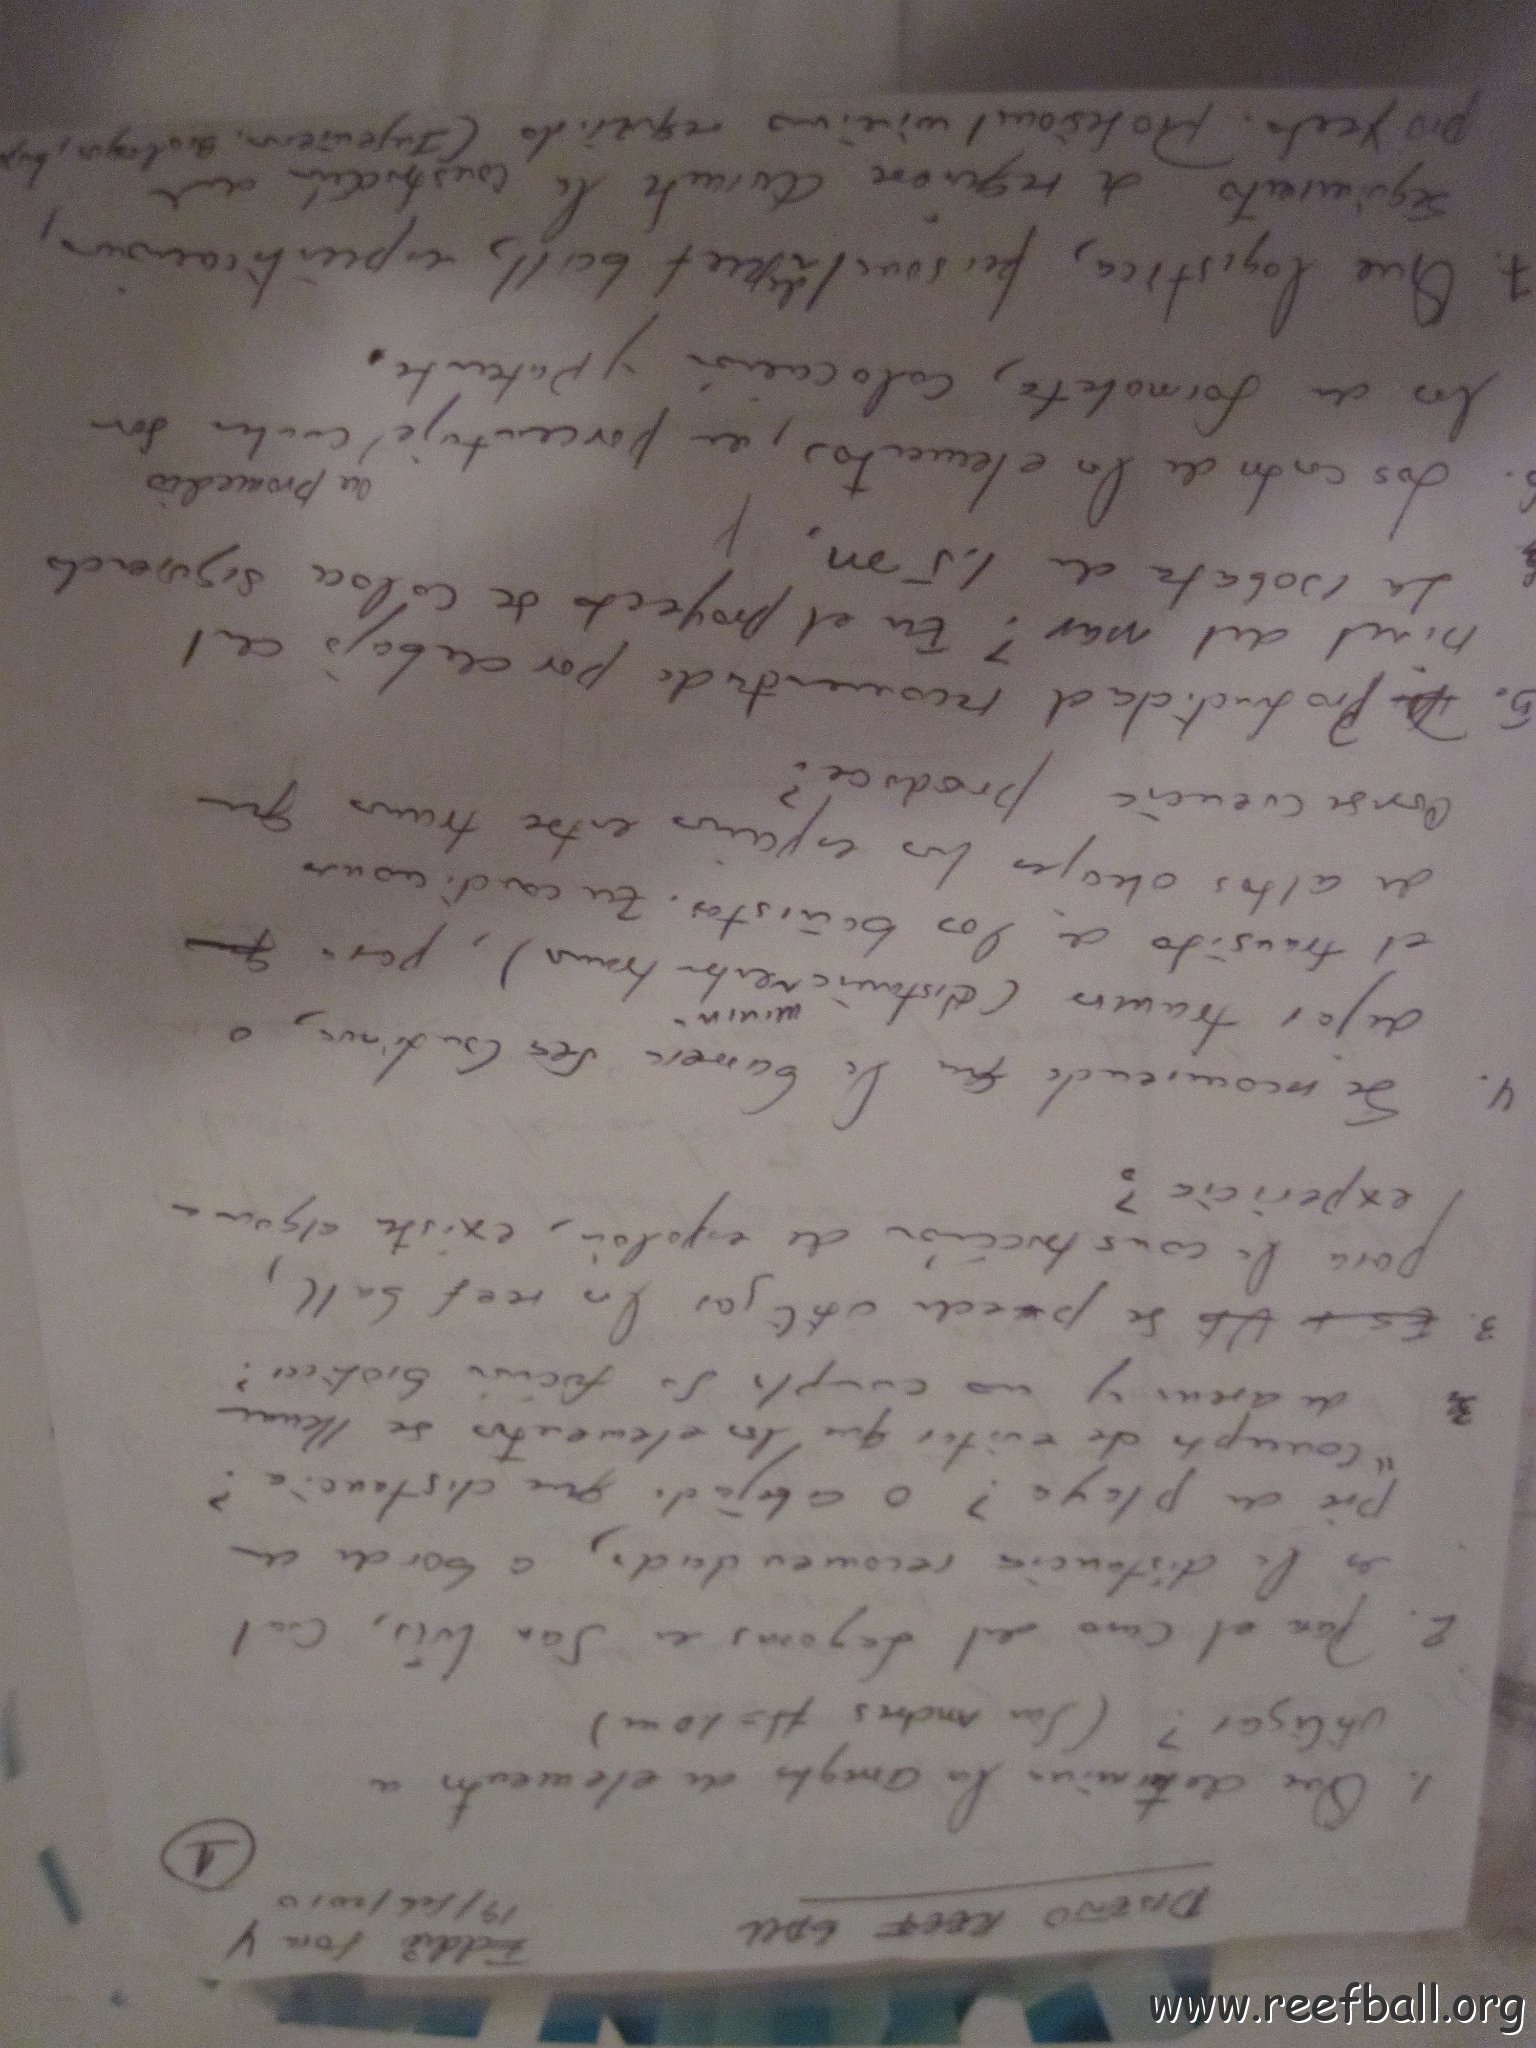 DISEÑO REEF BALL
19/feb/2010
1
1. Que determina la de elemento a
utilizar? (San Andres H=10m)
2. Para el caso del Laguna en San Luis, Cual
es la distancia recomendada, a borde de
pie de playa? o alejado que distancia?
"Cumpla de evitar que los elementos se llenan
de arena y no cumpla su función biotica?
3. Se puede utilizar los reef ball,
para la construcción de espolón, existe alguna
experiecia?
4. Se recomienda que la barrera sea continua, o
dejar tramos (distancia entre tramos), para
minim
el transito de los bañistas. En condiciones
de altos oleajes los espacios entre tramos que
consecuencia produce?
5. Profundidad recomendada por debajo del
nivel del mar? En el proyecto se coloca siguiendo
La isobata de 1.5 m.
6. Los costos de los elementos, en porcentaje cuales son
en promedio
los de formaleta, colocación y patente.
7. Que logística, personal reef ball, especificación,
seguimiento se requiere durante la construcción del
proyecto. Profesional minimo requerido (Ingeniero, Biologo,